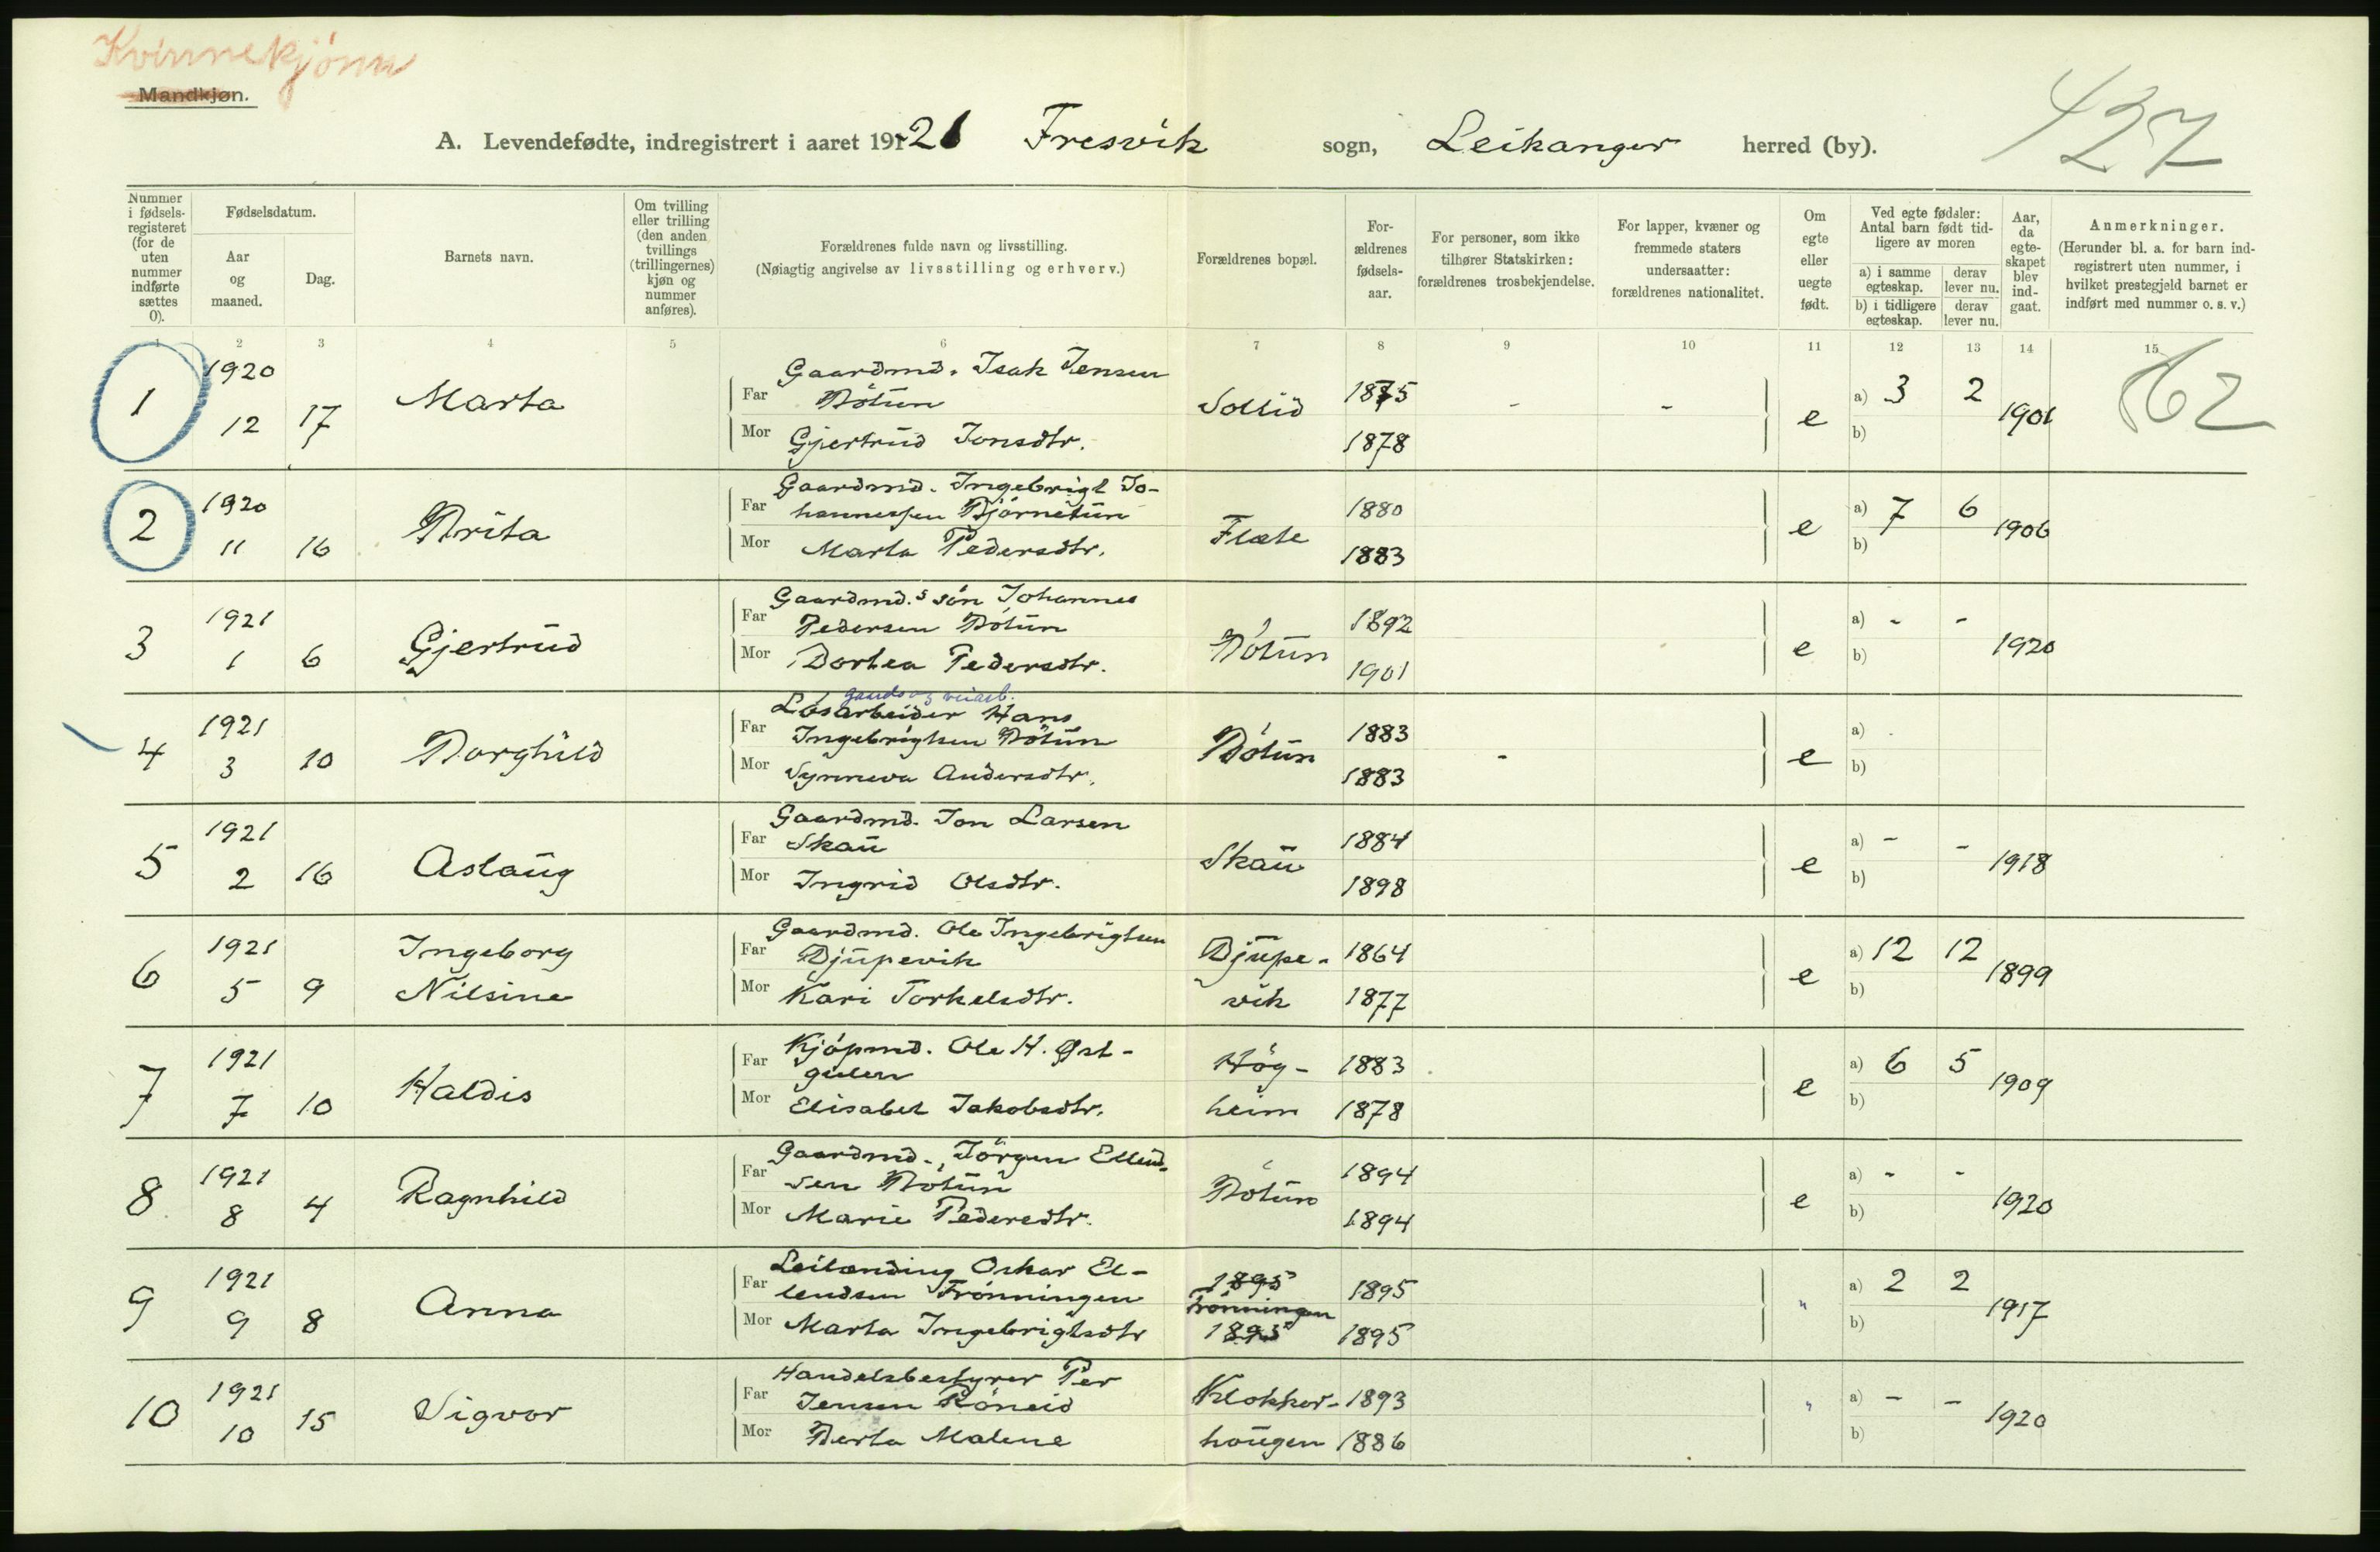 Kvinnekjønn
Mandkjøn.
427
A. Levendefødte, indregistrert i aaret 1921 Fresvik sogn, Leikanger herred (by).
Nummer i fødselsregisteret (for de uten nummer indførte sættes 0).
Fødselsdatum.
Aar og maaned.
Dag.
Barnets navn.
Om tvilling eller trilling (den anden tvillings (trillingernes) kjøn og nummer anføres).
Forældrenes fulde navn og livsstilling.
(Nøiagtig angivelse av livsstilling og erhverv.)
Forældrenes bopæl.
Forældrenes fødselsaar.
For personer, som ikke tilhører Statskirken: forældrenes trosbekjendelse.
For lapper, kvæner og fremmede staters undersaatter: forældrenes nationalitet.
Om egte eller uegte født.
Ved egte fødsler: Antal barn født tidligere av moren
a) i samme egteskap. derav lever nu.
b) i tidligere egteskap. derav lever nu.
Aar, da egteskapet blev indgaat.
Anmerkninger.
(Herunder bl. a. for barn indregistrert uten nummer, i hvilket prestegjeld barnet er indført med nummer o. s. v.)
1 2 3 4 5 6 7 8 9 10 11 12 13 14 15
62
1 1920 12 17 Marta
Far Gaardmd. Isak Jensen
Bötun
Mor Gjertrud Jonsdtr.
Sollid 1875 1878 - - e a) 3 2 b) 1901
2 1920 11 16 Brita
Far Gaardmd. Ingebrigt Jo-
hannessen Bjørnetun
Mor Marta Pedersdtr.
Flæte 1880 1883 e a) 7 6 b) 1906
3 1921 1 6 Gjertrud
Far Gaardmd.s sön Johannes
Pedersen Bötun
Mor Dortea Pedersdtr.
Bötun 1892 1901 e a) - - b) 1920
4 1921 3 10 Borghild
gaards og veiarb.
Far Lösarbeider Hans
Ingebrigtsen Bötun
Mor Synneva Andersdtr.
Bötun 1883 1883 - e a) b)
5 1921 2 16 Aslaug
Far Gaardmd. Jon Larsen
Skau
Mor Ingrid Olsdtr.
Skau 1884 1898 e a) - - b) 1918
6 1921 5 9 Ingeborg
Nilsine
Far Gaardmd. Ole Ingebrigtsen
Djupevik
Mor Kari Torkelsdtr.
Djupe-
vik 1864 1877 e a) 12 12 b) 1899
7 1921 7 10 Haldis
Far Kjöpmd. Ole H. Øst-
gulen
Mor Elisabet Jakobsdtr.
Hög-
heim 1883 1878 e a) 6 5 b) 1909
8 1921 8 4 Ragnhild
Far Gaardmd. Jörgen Ellend-
sen Bötun
Mor Marie Pedersdtr.
Bötun 1894 1894 e a) - - b) 1920
9 1921 9 8 Anna
Far Leilending Oskar El-
lendsen Trönningen
Mor Marta Ingebrigtsdtr
1895
Trönningen
1895
1895 1895 " a) 2 2 b) 1917
10 1921 10 15 Sigvor
Far Handelsbestyrer Per
Jensen Röneid
Mor Berta Malene
Klokker-
haugen 1893 1886 " a) - - b) 1920